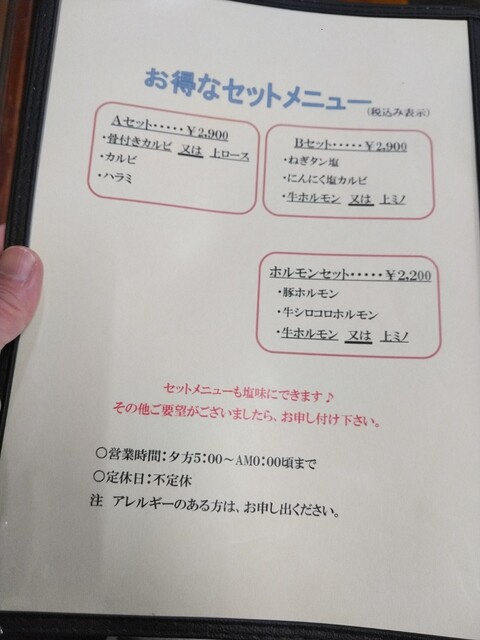 お得なセットメニュー
(税込み表示)
Aセット・・・・・￥2,900
・骨付きカルビ 又は 上ロース
・カルビ
・ハラミ
Bセット・・・・・￥2,900
・ねぎタン塩
・にんにく塩カルビ
・牛ホルモン 又は 上ミノ
ホルモンセット・・・・・￥2,200
・豚ホルモン
・牛シロコロホルモン
・牛ホルモン 又は 上ミノ
セットメニューも塩味にできます♪
その他ご要望がございましたら、お申し付け下さい。
○営業時間：夕方5：00～AM0：00頃まで
○定休日：不定休
注 アレルギーのある方は、お申し出ください。